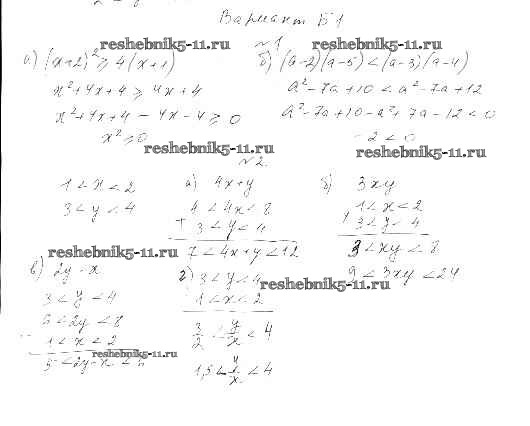 Вариант Б1
№1
а) (x+2)² ≥ 4(x+1)
x²+4x+4 ≥ 4x+4
x²+4x+4 − 4x−4 ≥ 0
x² ≥ 0
б) (a-2)(a-5) < (a-3)(a-4)
a²-7a+10 < a²-7a+12
a²-7a+10-a²+7a-12 < 0
-2 < 0
reshebnik5-11.ru
reshebnik5-11.ru
reshebnik5-11.ru
reshebnik5-11.ru
№2.
1 < x < 2
3 < y < 4
а) 4x+y
4 < 4x < 8
+ 3 < y < 4
7 < 4x+y < 12
б) 3xy
1 < x < 2
3 < y < 4
3 < xy < 8
9 < 3xy < 24
reshebnik5-11.ru
reshebnik5-11.ru
в) 2y-x
3 < y < 4
6 < 2y < 8
1 < x < 2
reshebnik5-11.ru
г) 3 < y < 4
1 < x < 2
3/2 < y/x < 4
1,5 < y/x < 4